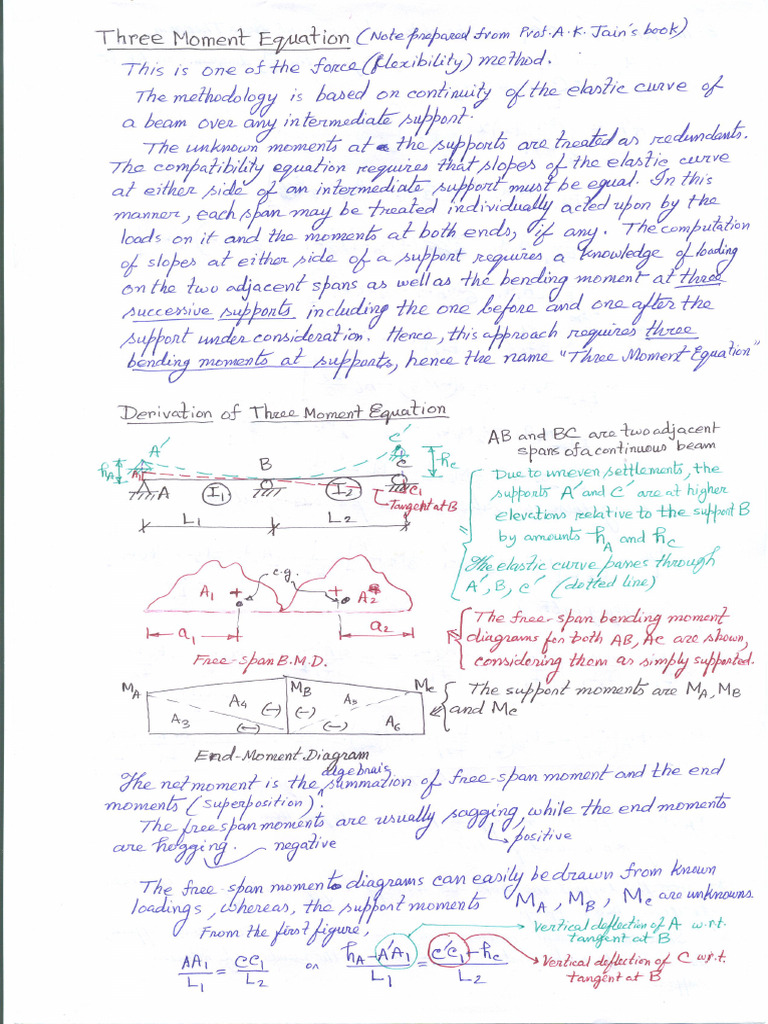 Three Moment Equation (Note prepared from Prof. A. K. Jain's book)
This is one of the force (flexibility) method.
The methodology is based on continuity of the elastic curve of
a beam over any intermediate support.
The unknown moments at the supports are treated as redundents.
The compatibility equation requires that slopes of the elastic curve
at either side of an intermediate support must be equal. In this
manner, each span may be treated individually acted upon by the
loads on it and the moments at both ends, if any. The computation
of slopes at either side of a support requires a knowledge of loading
on the two adjacent spans as well as the bending moment at three
successive supports including the one before and one after the
support under consideration. Hence, this approach requires three
bending moments at supports, hence the name "Three Moment Equation"
Derivation of Three Moment Equation
AB and BC are two adjacent
spans of a continuous beam
A' B C' hA hC
A1 A I1 I2 C C1
Tangent at B
L1 L2
Due to uneven settlements, the
supports A' and C' are at higher
elevations relative to the support B
by amounts hA and hC
The elastic curve passes through
A', B, C' (dotted line)
A1 + c.g. + A2
a1 a2
Free-span B.M.D.
The free-span bending moment
diagrams for both AB, AC are shown,
considering them as simply supported.
MA MB MC
A3 A4 (-) (-) A5 A6
(-) (-)
End-Moment Diagram
The support moments are MA, MB
and MC
The net moment is the algebraic summation of free-span moment and the end
moments (superposition).
The free span moments are usually sagging, while the end moments
are hogging. negative positive
The free-span moment diagrams can easily be drawn from known
loadings, whereas, the support moments MA, MB, MC are unknowns.
From the first figure,
AA1/L1 = CC1/L2 or hA-A'A1/L1 = C'C1-hC/L2
Vertical deflection of A w.r.t.
tangent at B
Vertical deflection of C w.r.t.
tangent at B